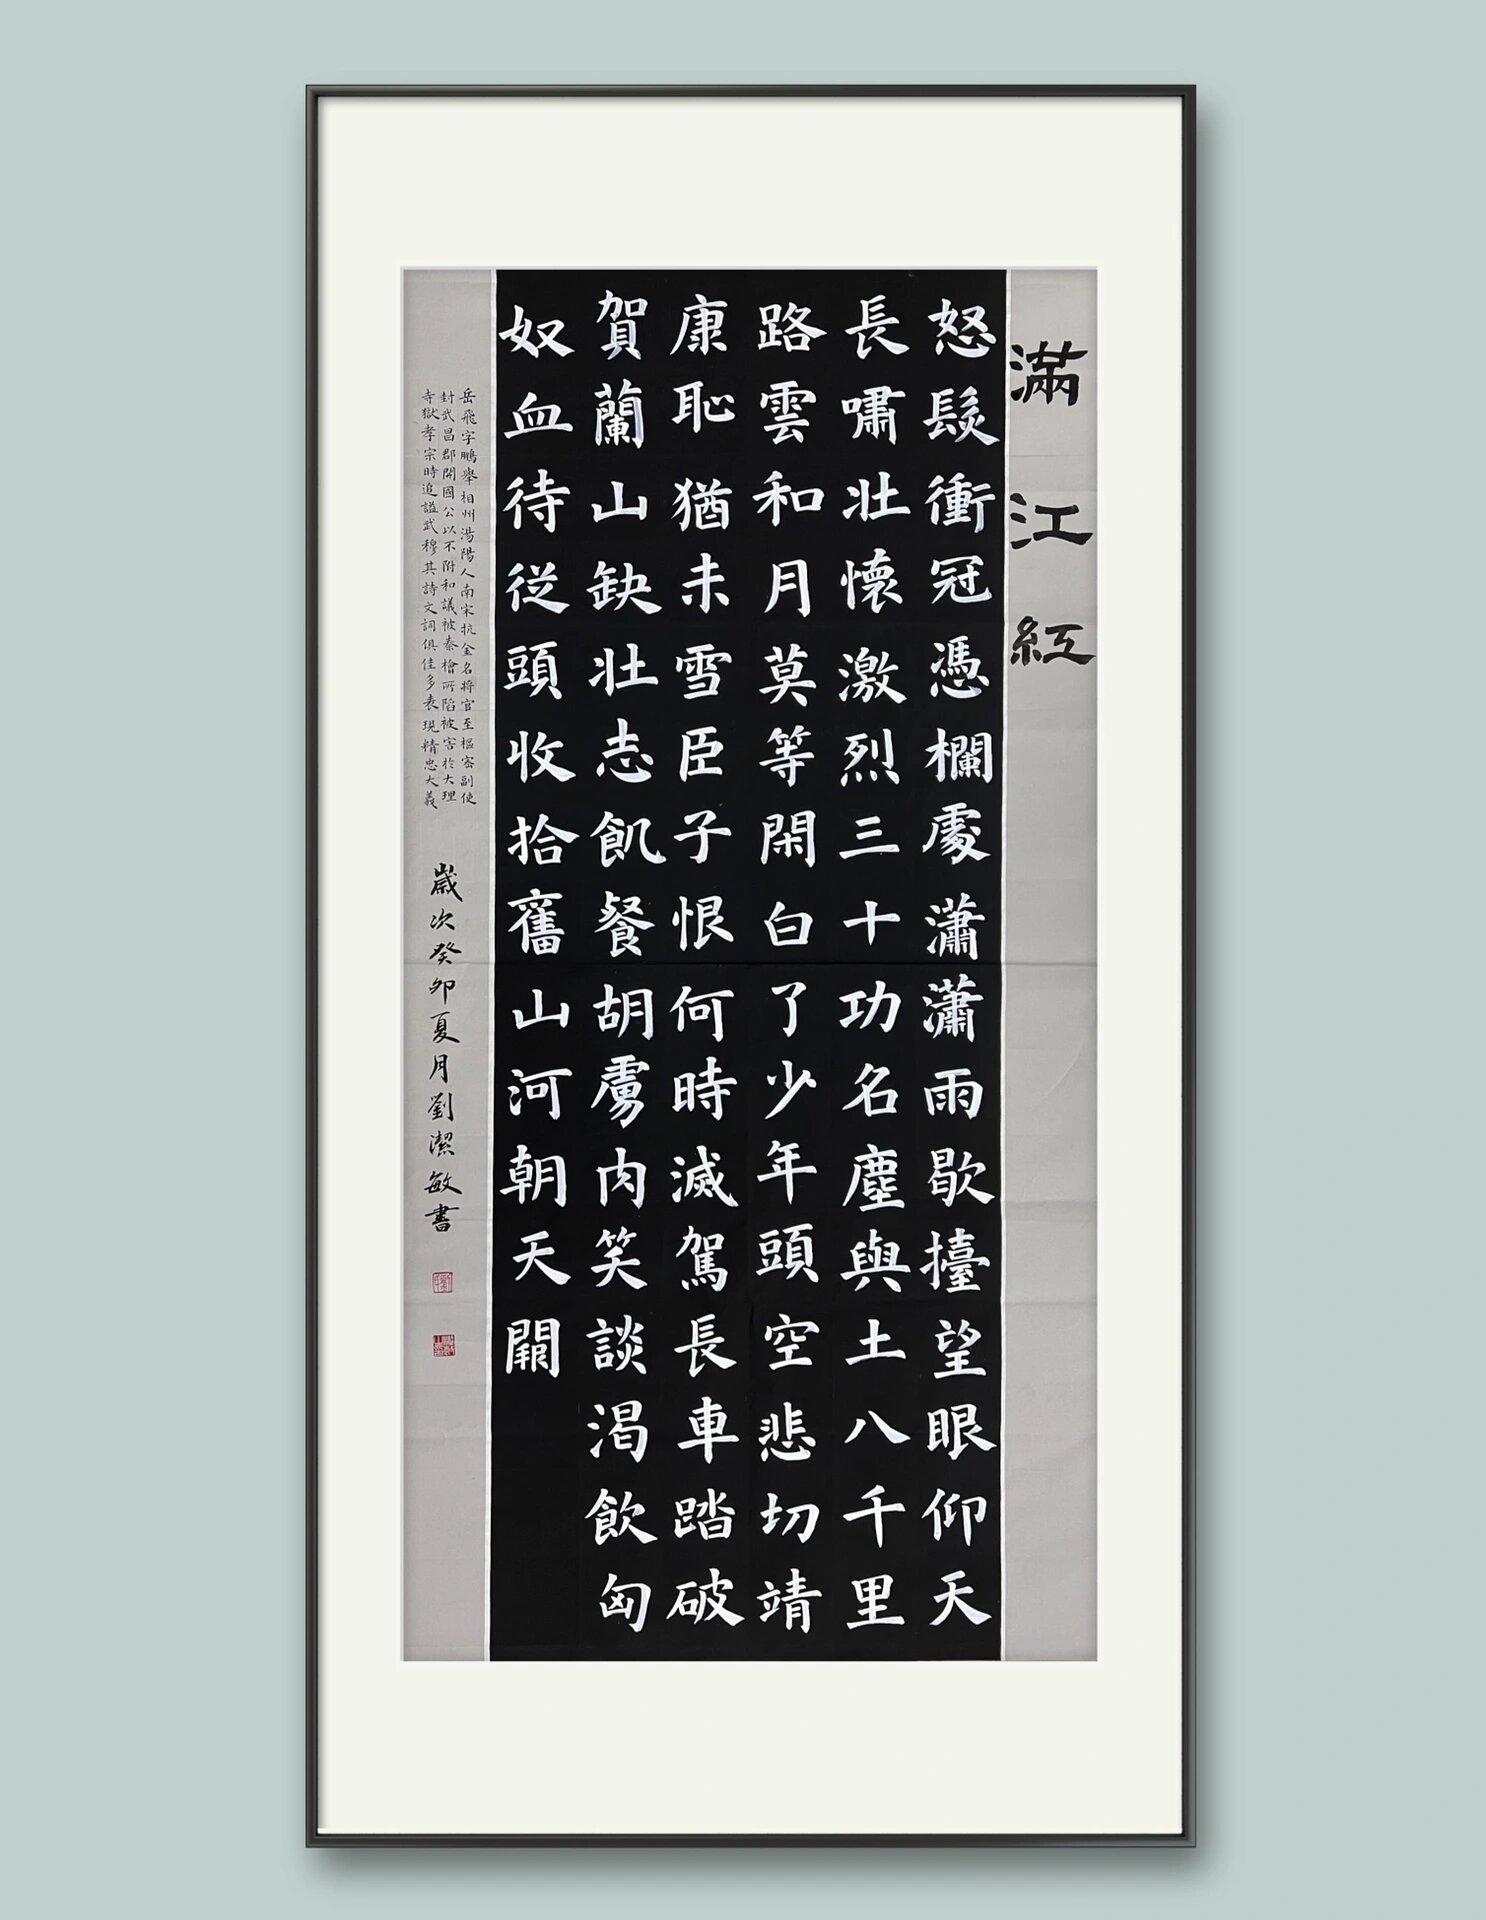 滿江紅
怒髮衝冠憑欄處瀟瀟雨歇擡望眼仰天
長嘯壯懷激烈三十功名塵與土八千里
路雲和月莫等閑白了少年頭空悲切靖
康恥猶未雪臣子恨何時滅駕長車踏破
賀蘭山缺壯志飢餐胡虜肉笑談渴飲匈
奴血待從頭收拾舊山河朝天闕
岳飛字鵬舉相州湯陽人南宋抗金名將官至樞密副使
封武昌郡開國公以不附和議被秦檜所陷被害於大理
寺獄孝宗時追謚武穆其詩文詞俱佳多表現精忠大義
歲次癸卯夏月劉潔敏書